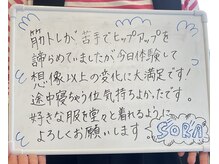 筋トレが苦手でヒップアップを
諦めていましたが今日体験して
想像以上の変化に大満足です!
途中寝ちゃう位気持ちよかったです。
好きな服を堂々と着れるように
よろしくお願いします
SORA